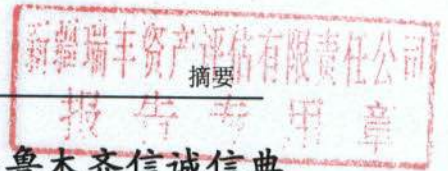 新疆瑞丰资产评估有限责任公司
摘要
报告专用章
鲁木齐信诚信典